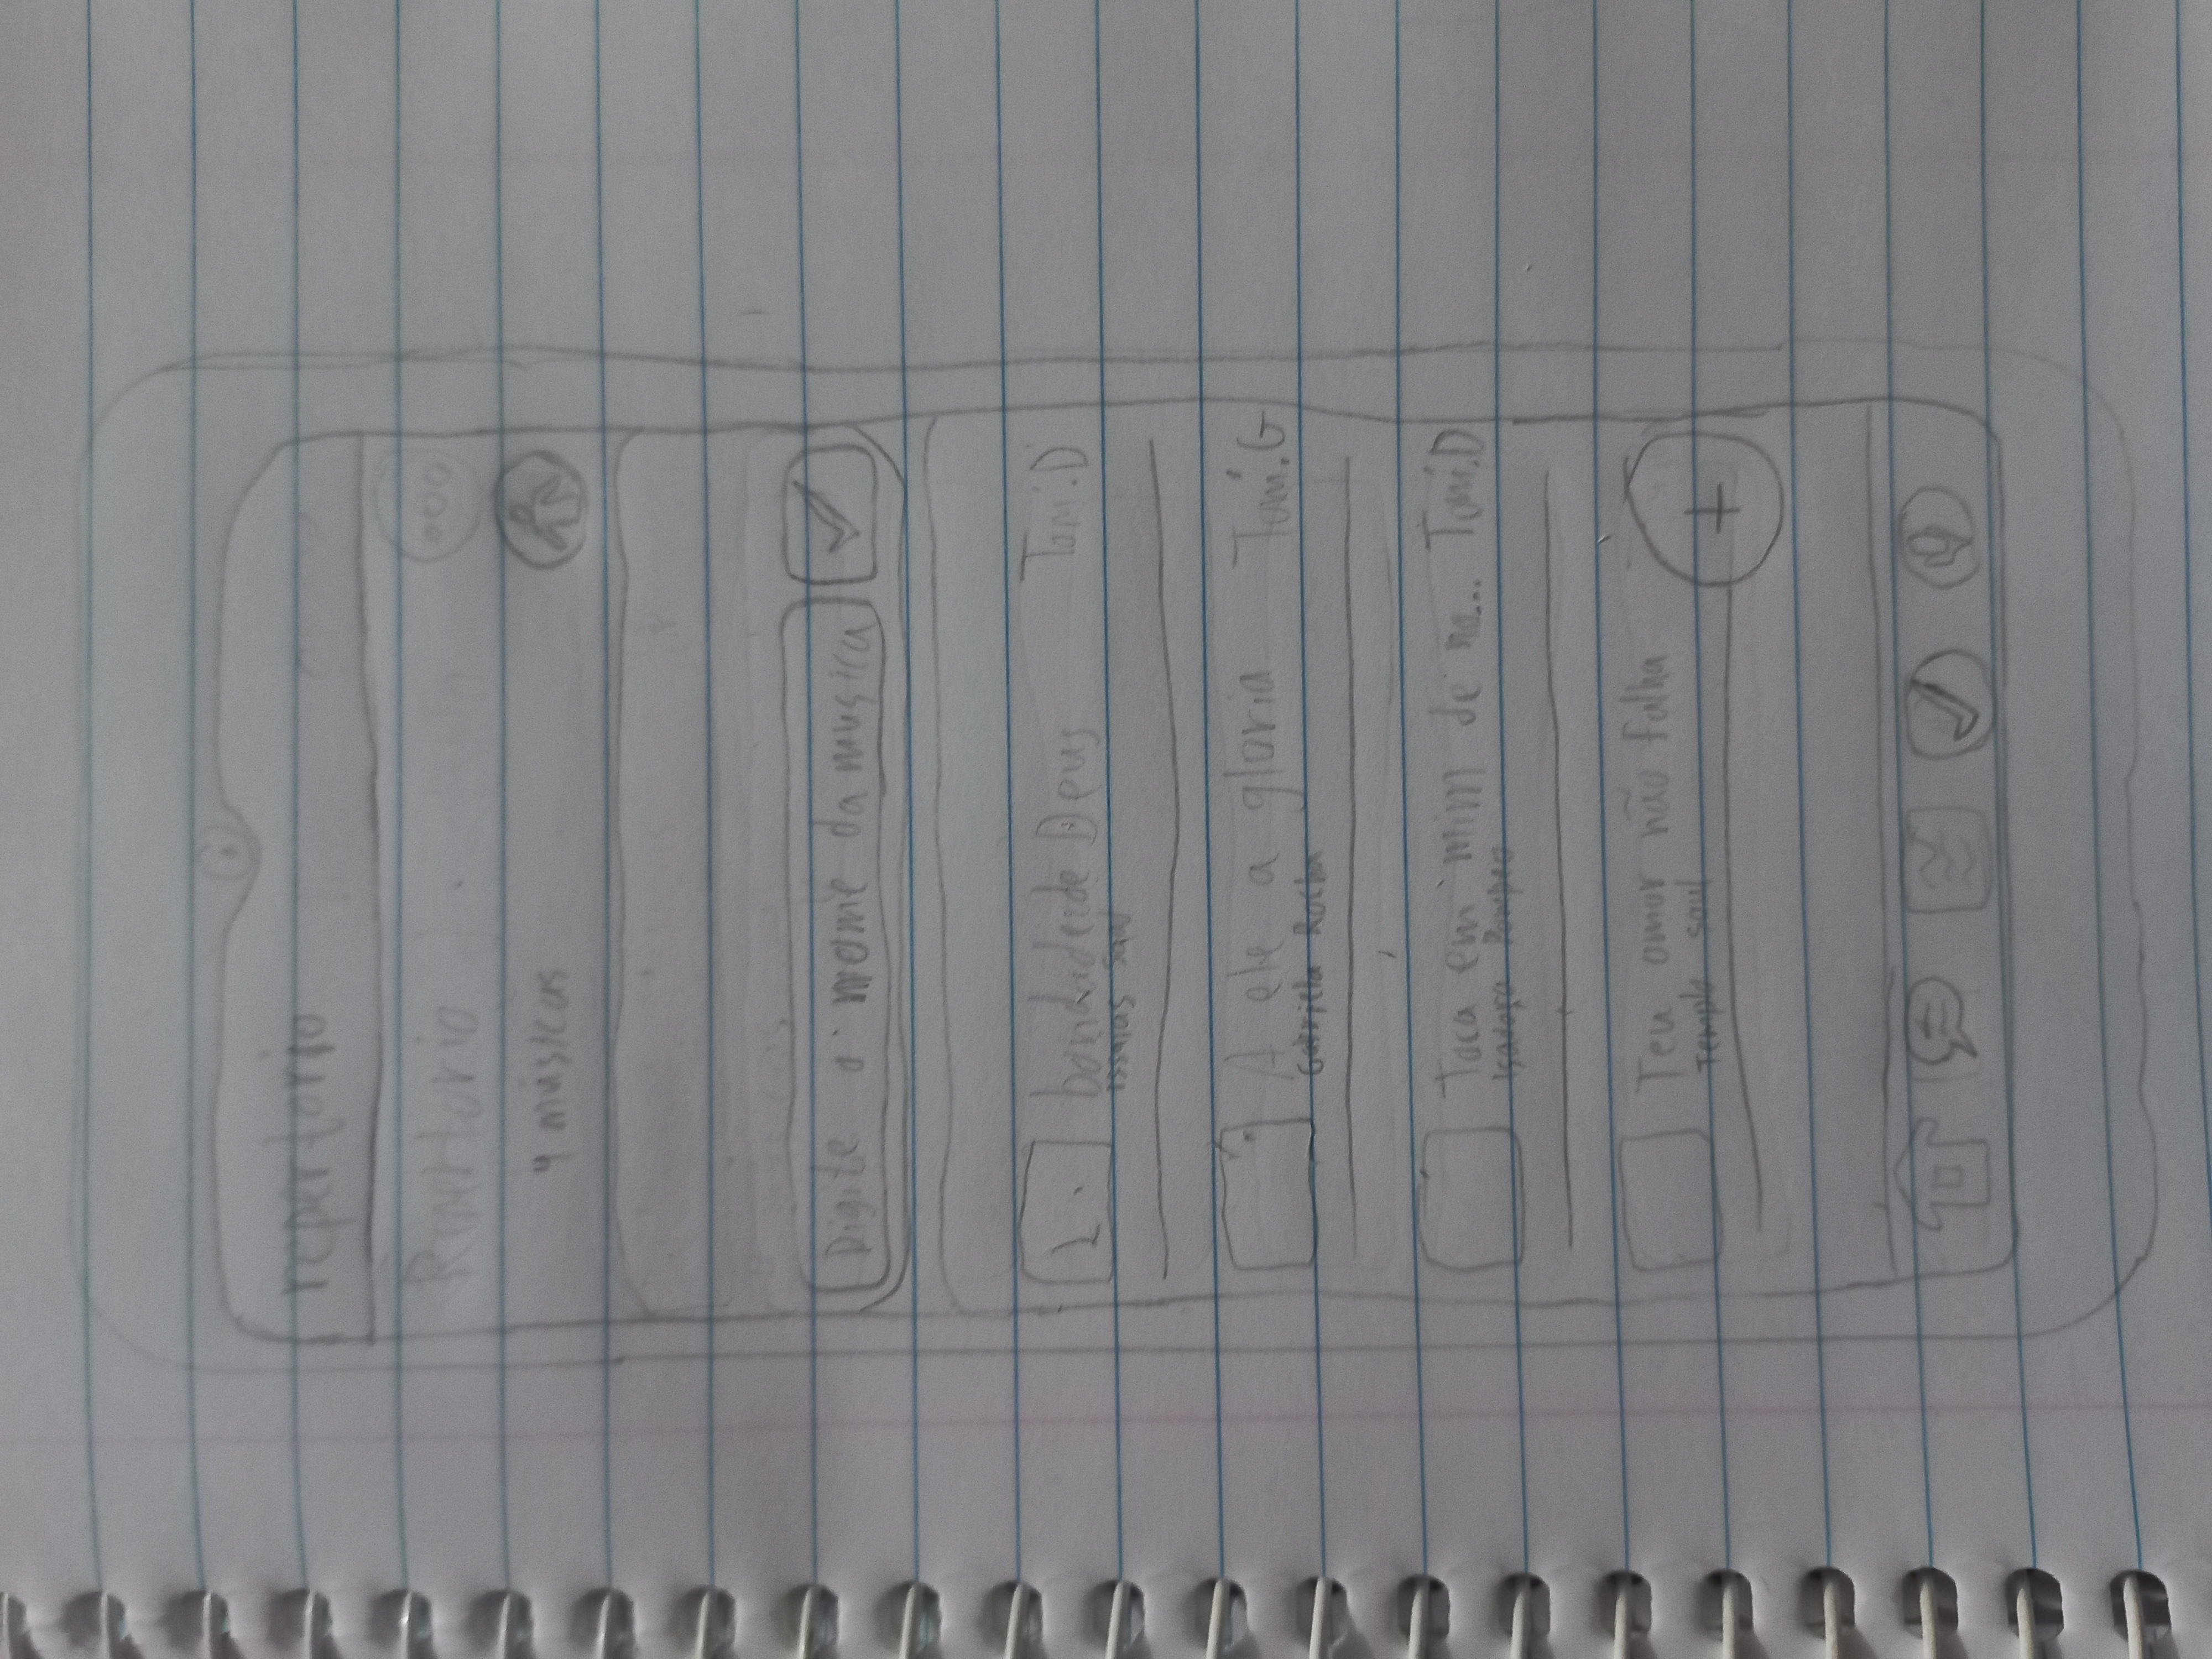 repertorio
Repertorio
4 músicas
Digite o nome da musica
bondade de Deus Tom:D
Issaias Saul
A ele a gloria Tom:G
Gabriela Rocha
Toca em mim de no... Tom:D
Isadora Pompeo
Teu amor não falha
Templo saul
+